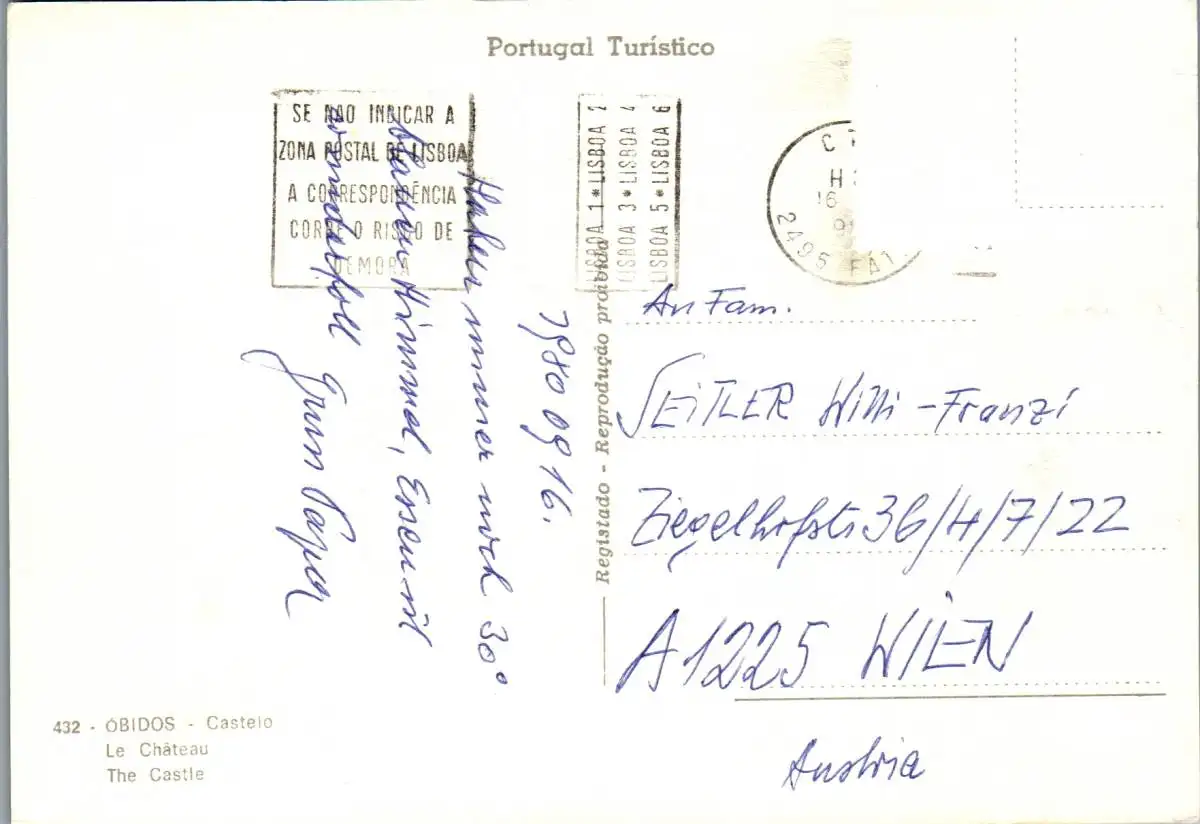 Portugal Turístico
SE NÃO INDICAR A
ZONA POSTAL DE LISBOA
A CORRESPONDÊNCIA
CORRE O RISCO DE
DEMORA
LISBOA 1 * LISBOA 2
LISBOA 3 * LISBOA 4
LISBOA 5 * LISBOA 6
C
H
16
2495 FÁT
1980 09 16.
Haben immer noch 30°
blauen Himmel, Essen ist
wundervoll
Registado - Reprodução proibida
An Fam.
SEITLER Willi - Franzi
Ziegelhofstr 36/4/7/22
A 1225 WIEN
Austria
432 - ÓBIDOS - Castelo
Le Château
The Castle